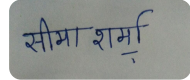 सीमा शर्मा